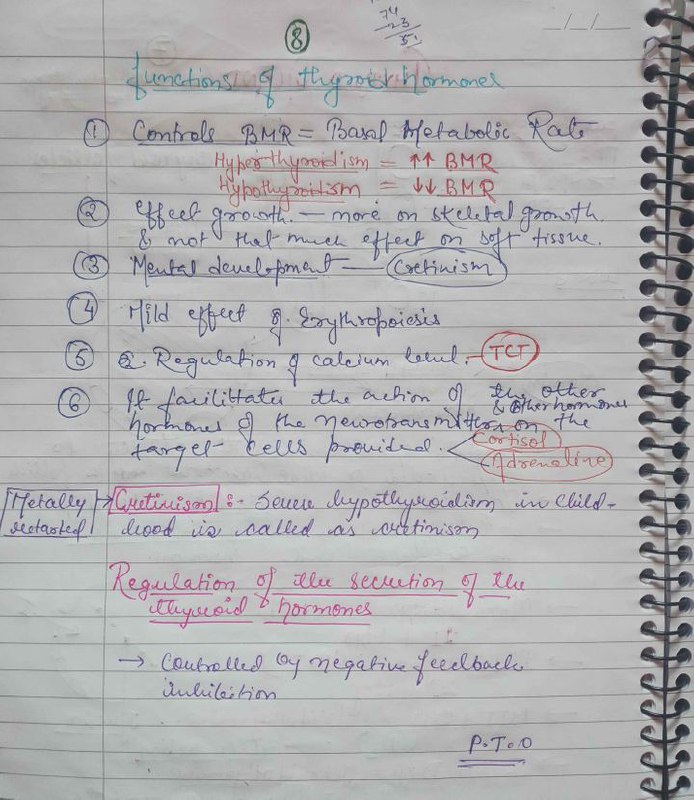 8
74
23
51
functions of thyroid hormones
1 Controls BMR = Basal Metabolic Rate
Hyperthyroidism = ↑↑ BMR
Hypothyroidism = ↓↓ BMR
2 effect growth. — more on skeletal growth.
& not that much effect on soft tissue.
3 Mental development — Cretinism
4 Mild effect of Erythropoiesis
5 Regulation of calcium level. - TCT
6 It facilittates the action of the other
& other hormones
hormones of the neurotransmitters on the
target cells provided. Cortisol
Adrenaline
Metally → Cretinism :- Severe hypothyroidism in child-
retarted hood is called as cretinism
Regulation of the secretion of the
thyroid hormones
→ Controlled by negative feedback
inhibition
P.T.O